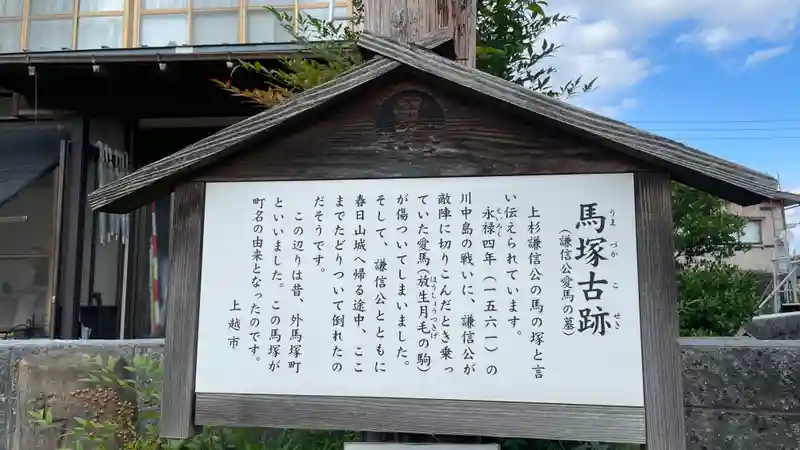 馬塚古跡
うまづかこせき
(謙信公愛馬の墓)
上杉謙信公の馬の塚と言
い伝えられています。
永禄四年(一五六一)の
えいろく
川中島の戦いに、謙信公が
敵陣に切りこんだとき乗っ
ていた愛馬(放生月毛の駒)
ほうしょうつきげ
が傷ついてしまいました。
そして、謙信公とともに
春日山城へ帰る途中、ここ
までたどりついて倒れたの
だそうです。
この辺りは昔、外馬塚町
といいました。この馬塚が
町名の由来となったのです。
上越市